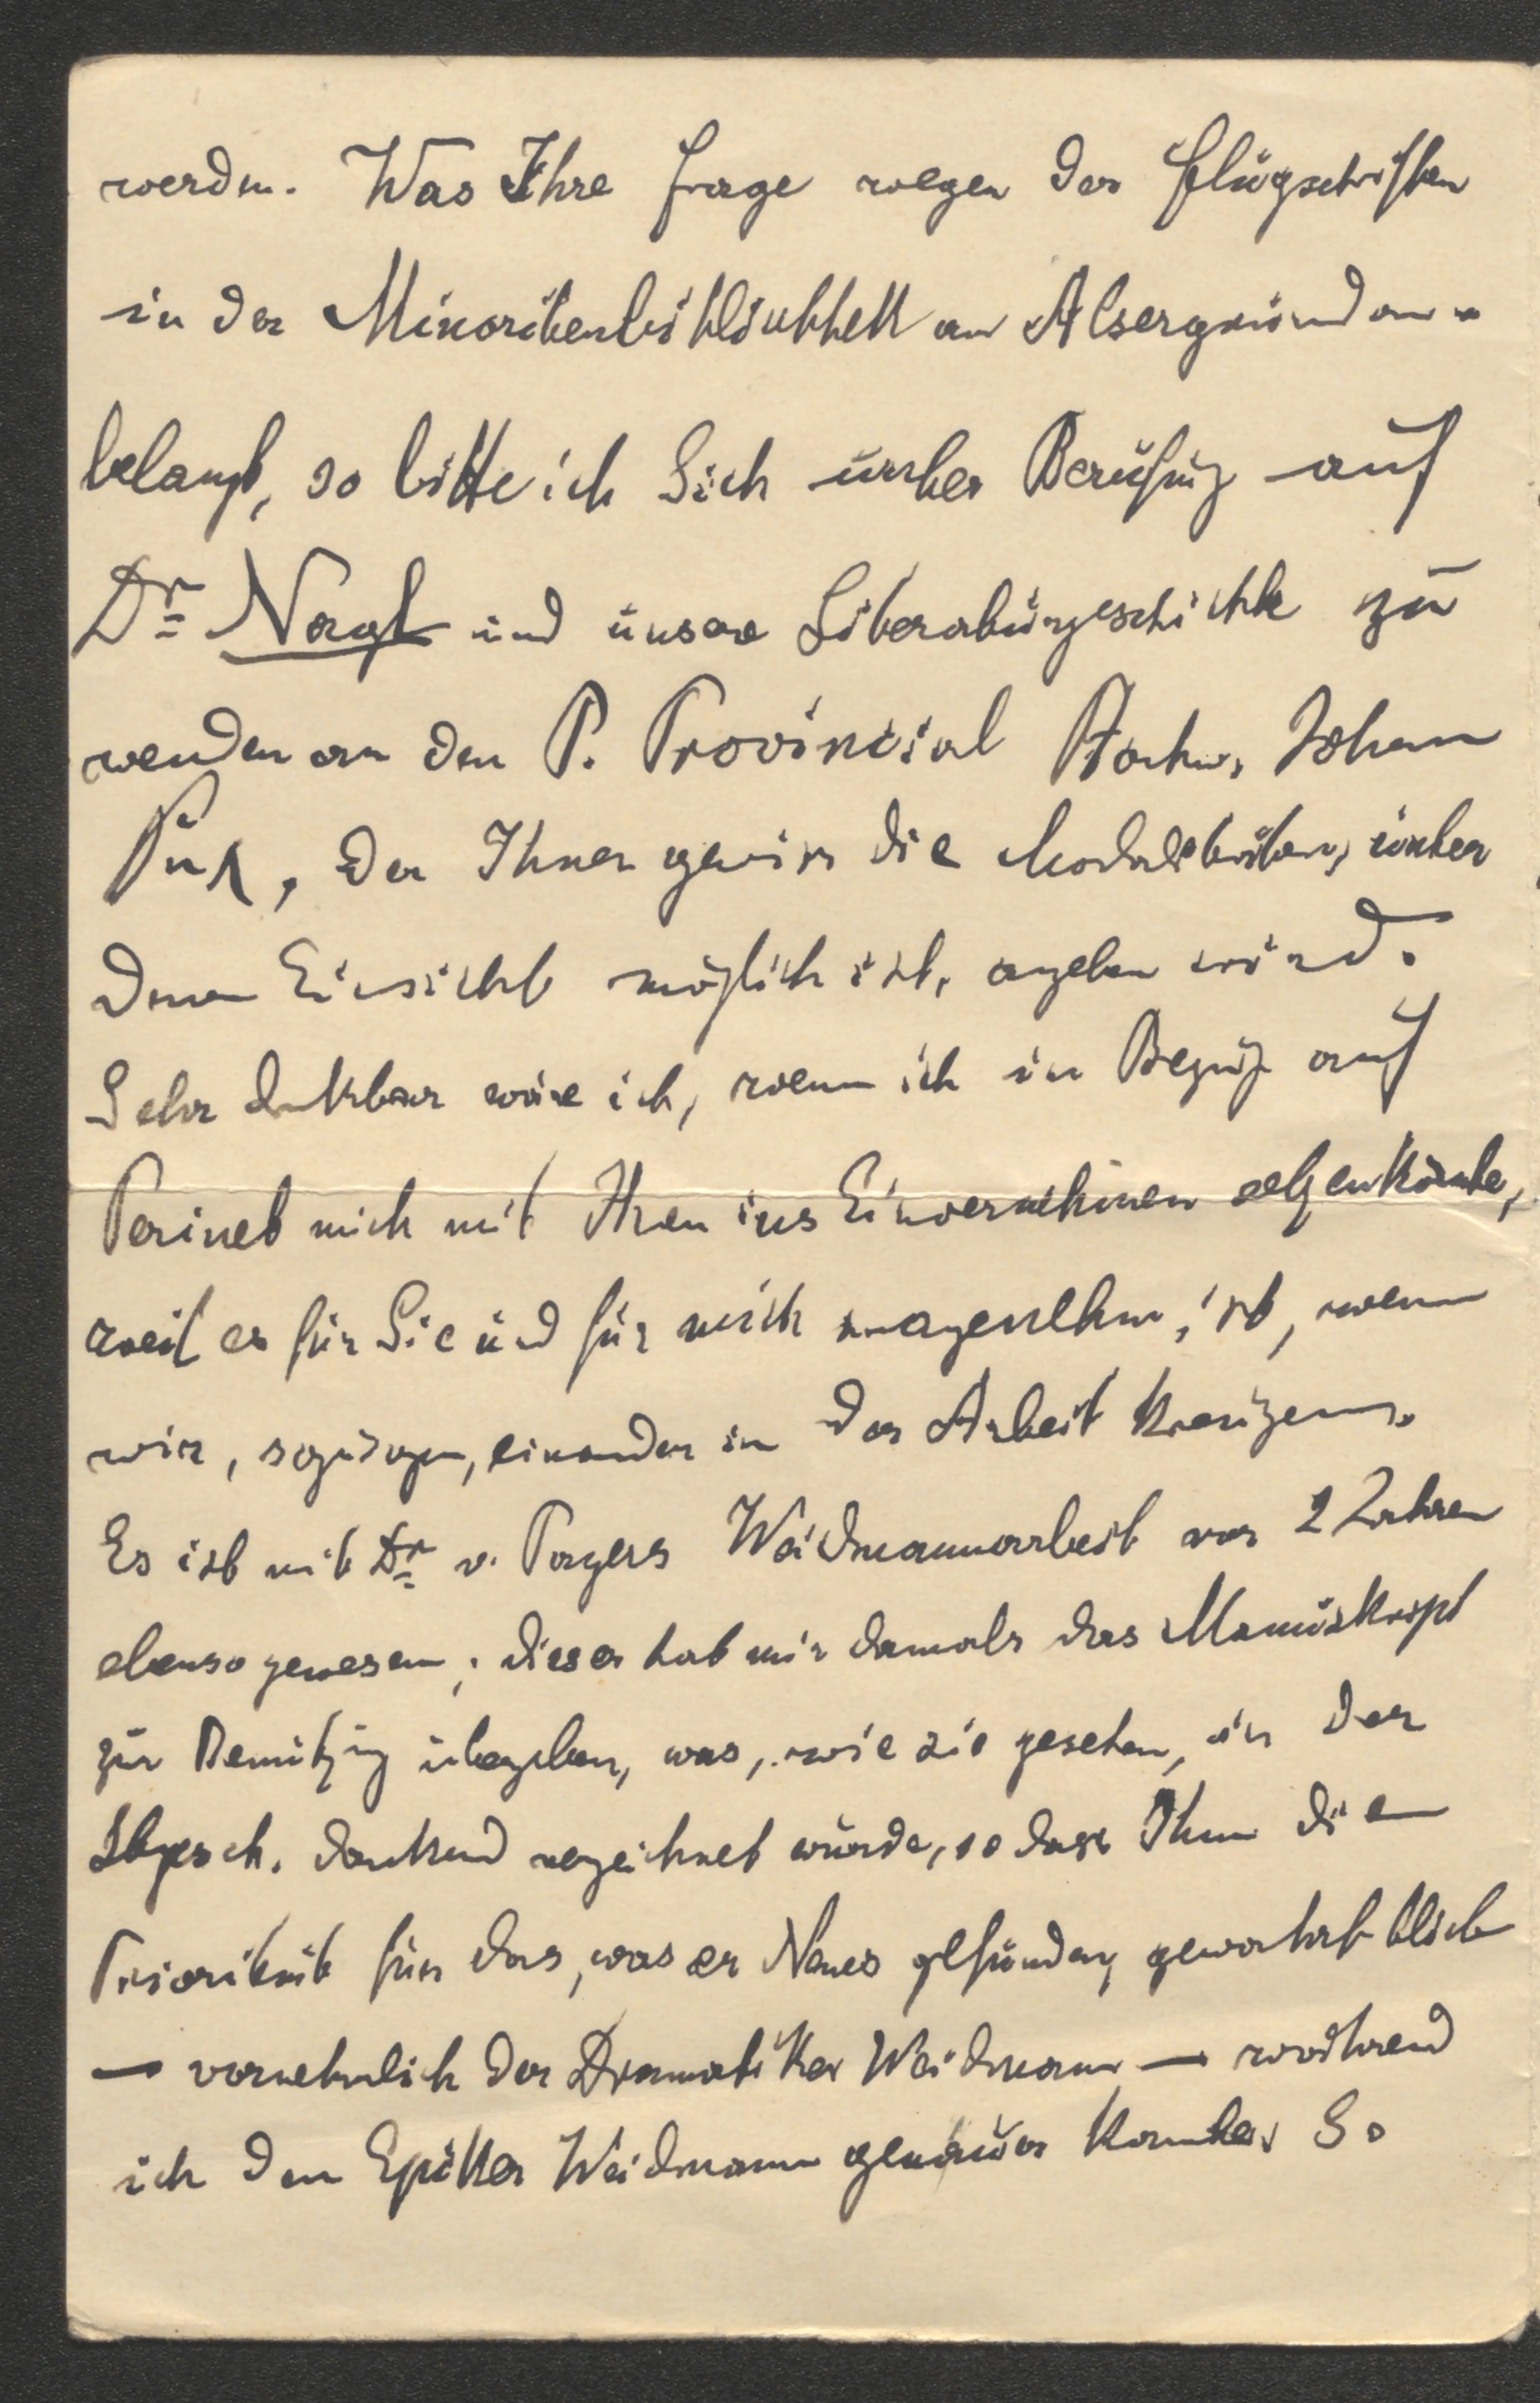 werden. Was Ihre Frage wegen der Flugschriften
in der Minoritenbibliothek am Alsergrund an-
belangt, so bitte ich Sich unter Berufung auf
Dr Nagl und unsere Literaturgeschichte zu
wenden an den P. Provincial Johann
der Ihnen gewiss die Modalitäten, unter
denen Einsicht möglich ist, angeben wird.
Sehr dankbar wäre ich, wenn ich in Bezug auf
Perinet mich mit Ihnen ins Einvernehmen setzen könnte,
weil es für Sie und für mich unangenehm ist, wenn
wir, sozusagen, einander in der Arbeit kreuzen.
Es ist mit Dr v. Payers Weidmannarbeit vor 2 Jahren
ebenso gewesen; dieser hat mir damals das Manuskript
zur Benützung übergeben, was, wie sie gesehen, in der
dankend verzeichnet wurde, so dass Ihm die
Priorität für das, was er Neues gefunden, gewahrt blieb
— vornehmlich der Dramatiker Weidmann — während
ich den Epiker Weidmann genauer kannte. So